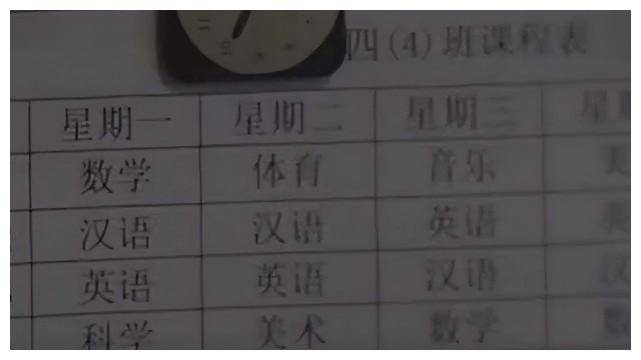 四(4)班课程表
星期一 星期二 星期三 星期
数学 体育 音乐
汉语 汉语 英语 英
英语 英语 汉语 汉
科学 美术 数学 数